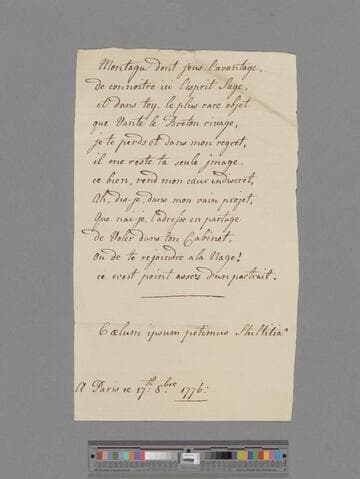 Montagu dont j'eus l'avantage,
de connoitre ici l'esprit sage,
et dans toy, le plus rare objet
que Vante le Breton rivage,
je te perds et dans mon regret,
il me reste ta seule jmage.
ce bien, rend mon cœur indiscret,
Ah, dis-je, dans mon vain projet,
Que n'ai-je, l'adresse en partage
de Voler dans ton Cabinet,
Ou de te rejoindre a la Nage!
ce n'est point assez d'un portrait.
Cœlum ipsum petimus Stultitia
A Paris ce 17th 8bre 1776.